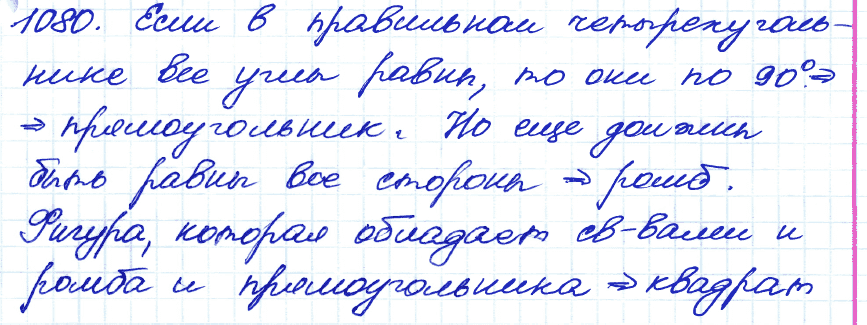 1080. Если в правильном четырехуголь-
нике все углы равны, то они по 90°.⇒
⇒ прямоугольник. Но еще должны
быть равны все стороны ⇒ ромб.
Фигура, которая обладает св-вами и
ромба и прямоугольника ⇒ квадрат